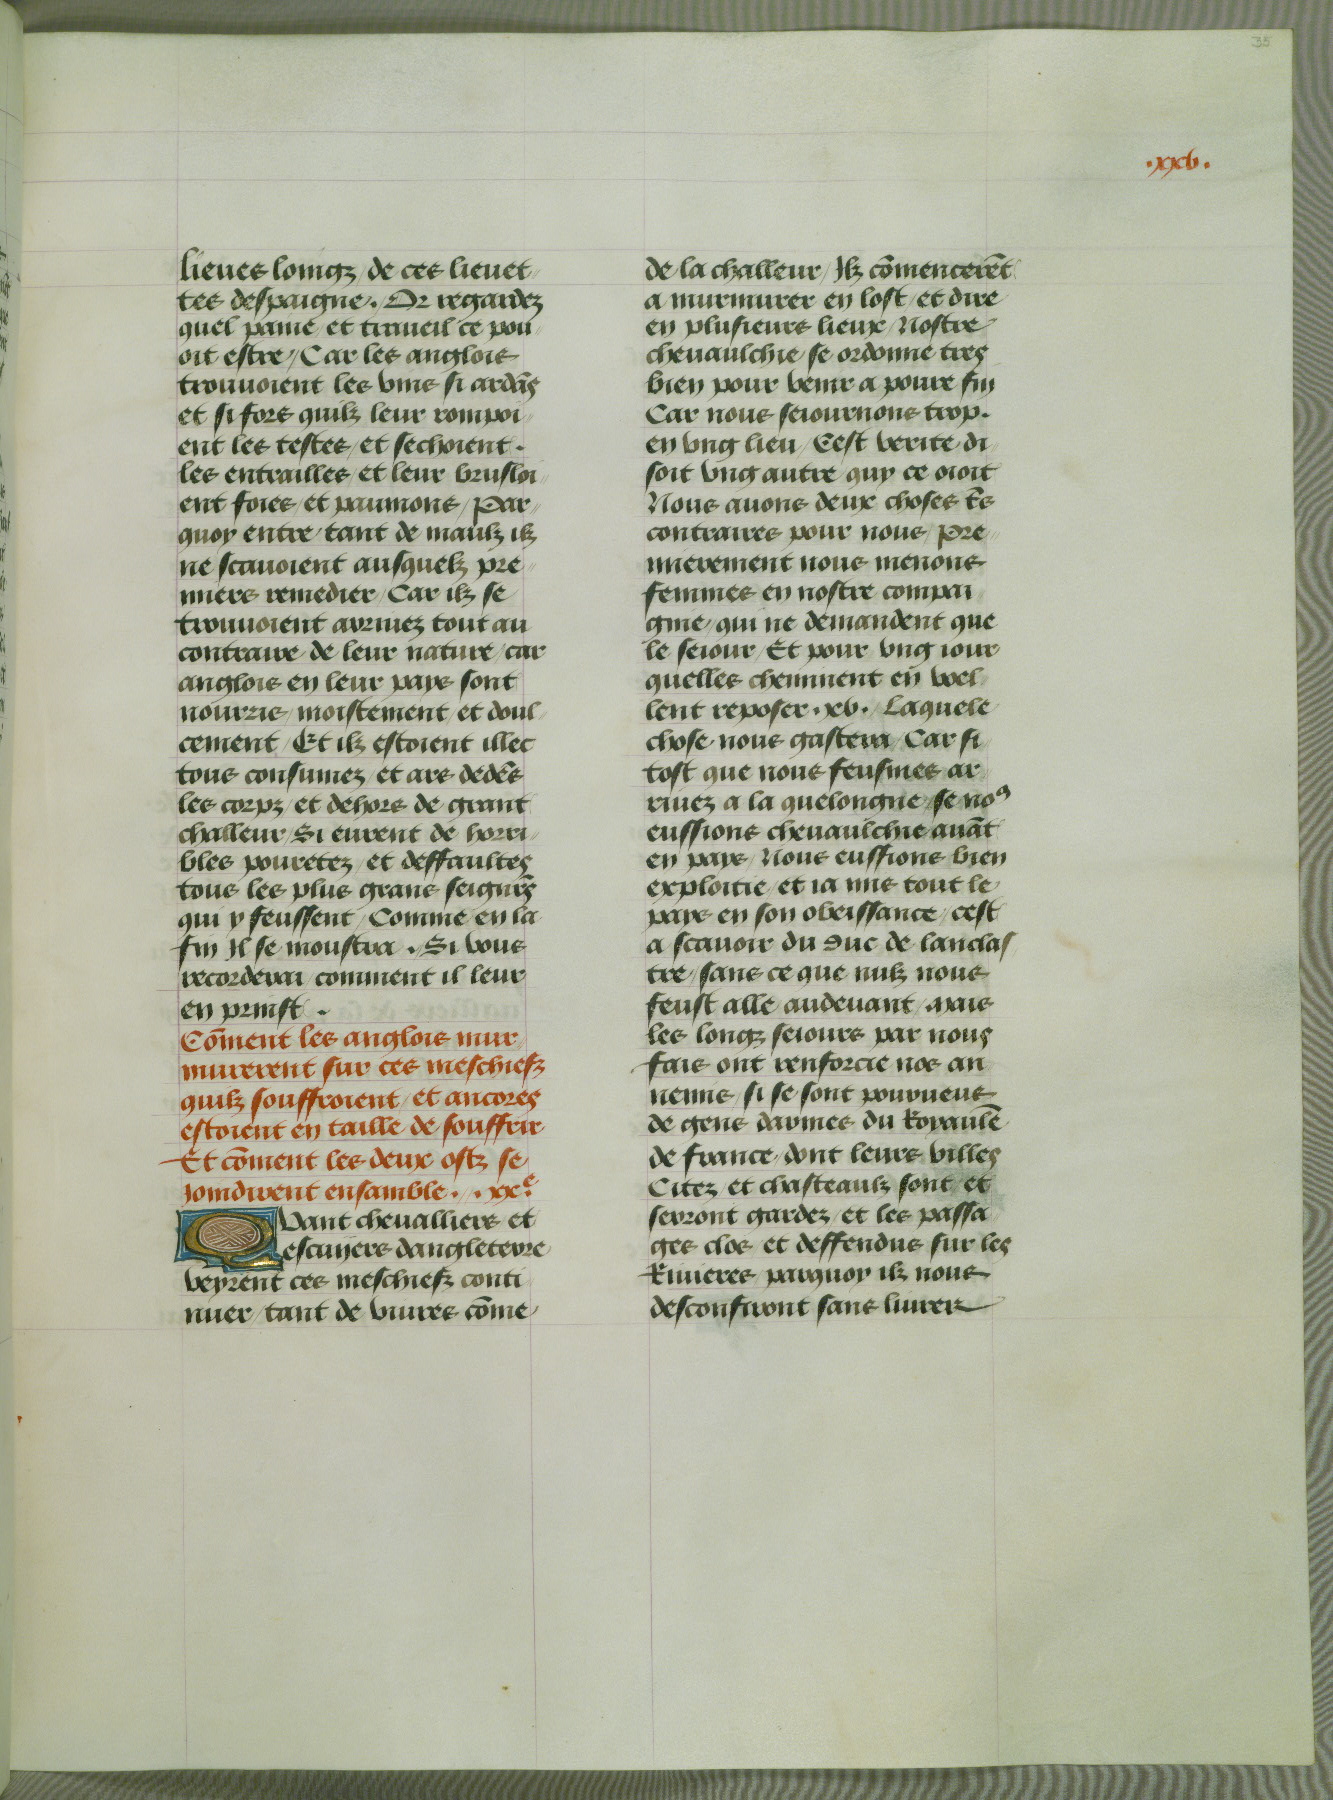 35
.xxv.
lieues loingz de ces lieuet
tes despaigne. Or regardez
quel paine et traueil ce pou
oit estre / Car les anglois
trouuoient les vins si ardās
et si fors quilz leur rompoi
ent les testes / et sechoient.
les entrailles et leur brusloi
ent foies / et paumons / Par
quoy entre tant de maulz ilz
ne scauoient ausquelz pre
miers remedier / Car ilz se
trouuoient arriuez tout au
contraire de leur nature / car
anglois en leur pays sont
nourris moistement / et doul
cement / Et ilz estoient illec
tous consumez / et ars dedēs
les corpz et dehors de grant
challeur / Si eurent de horri
bles pouretez / et deffaultes
tous les plus grans seignrs
qui y feussent / Comme en la
fin Il se moustra. Si vous
recorderai comment il leur
en prinst.
Cōment les anglois mur
murerent sur ces meschiefz
quilz souffroient / et ancores
estoient en taille de souffrir
Et cōment les deux ostz se
Joindirent ensamble. .xxe.
Quant cheualliers et
escuyers dangleterre
veyrent ces meschiefz conti
nuer / tant de viures cōme
de la challeur / Ilz cōmencerēt
a murmurer en lost / et dire
en plusieurs lieux / Nostre
cheuaulchie se ordonne tres
bien pour venir a poure fin
Car nous seiournons trop.
en vng lieu / Cest verite di
soit vng autre quy ce oioit
Nous auons deux choses trēs
contraires pour nous / Pre
mierement nous menons
femmes en nostre compai
gnie / qui ne demandent que
le seiour / Et pour vng iour
quelles cheminent en voel
lent reposer .xv. Laquele
chose nous gastera / Car si
tost que nous feusmes ar
riuez a la quelongne / se noꝰ
eussions cheuaulchie auāt
en pays / Nous eussions bien
exploitie / et ia mis tout le
pays en son obeissance / cest
a scauoir du duc de lanclas
tre / sans ce que nulz nous
feust alle audeuant / mais
les longz seiours par nous
fais ont renforcie nos an
nemis / si se sont pourueus
de gens darmes du Royaulē
de france / dont leurs villes
Citez et chasteaulz sont et
seront gardez / et les passa
ges clos et deffendus sur les
Riuieres / parquoy ilz nous
desconfiront sans liurer